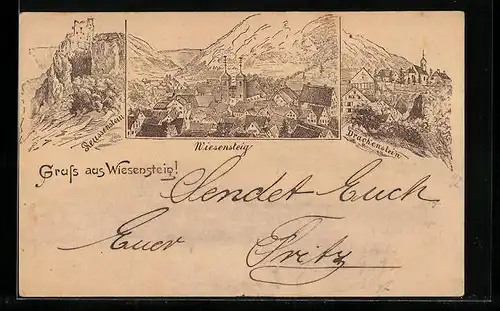 Reussenstein
Wiesensteig
Drackenstein
Gruß aus Wiesensteig!
Sendet Euch
Euer Fritz